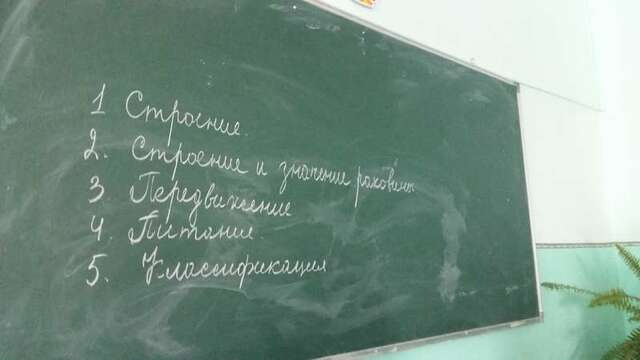 1 Строение.
2. Строение и значение раковины
3. Передвижение
4. Питание.
5. Классификация